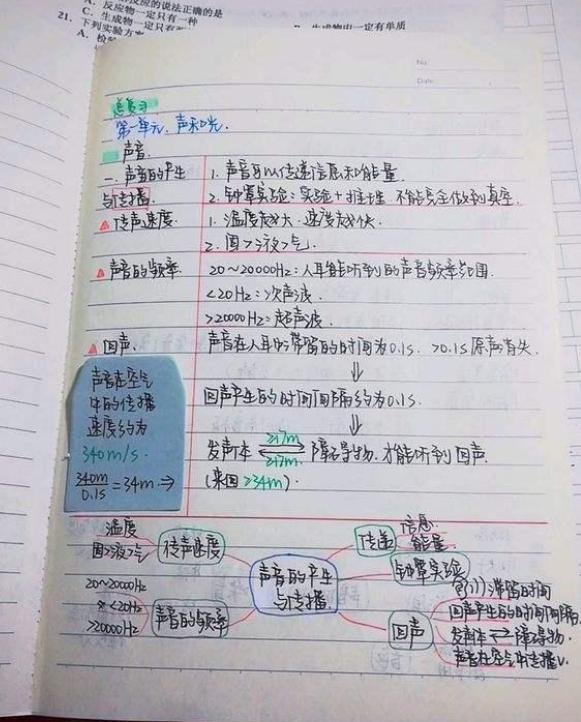 反应的说法正确的是
C. 反应物一定只有一种
生成物中一定有单质
21. 下列实验方案
A. 检
No
Date
总复习
第一单元. 声和光.
声音.
一. 声音的产生与传播.
1. 声音可以传递信息和能量.
2. 钟罩实验: 实验+推理 不能完全做到真空.
△传声速度.
1. 温度越大. 速度越快.
2. 固>液>气.
△声音的频率.
20~20000Hz: 人耳能听到的声音频率范围.
<20Hz: 次声波.
>20000Hz: 超声波.
△回声.
声音在人耳中滞留的时间为0.1s. >0.1s 原声消失.
⇓
回声产生的时间间隔约为0.1s.
⇓
发声体 ≥17m ≥17m 障碍物. 才能听到回声.
(来回≥34m).
声音在空气
中的传播
速度约为
340m/s.
340m/0.1s=34m⇒
温度
固>液>气
传声速度
20~20000Hz
<20Hz
>20000Hz
声音的频率
声音的产生
与传播.
传递
信息.
能量.
钟罩实验
回声
滞留时间
回声产生的时间间隔.
发声体⇄障碍物.
声音在空气中传播v.